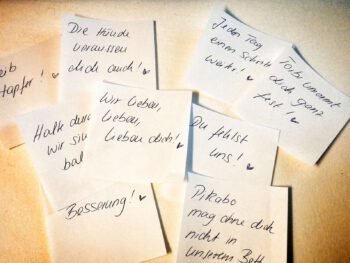 Die Hunde
vermissen
dich auch!
Jeden Tag
einen Schritt
weiter!
umarmt
dich ganz
fest!
Halte
wir
bal
Wir lieben,
lieben,
lieben dich!
Du fehlst
uns!
Besserung!
Pikabo
mag ohne dich
nicht in
unserem Bett